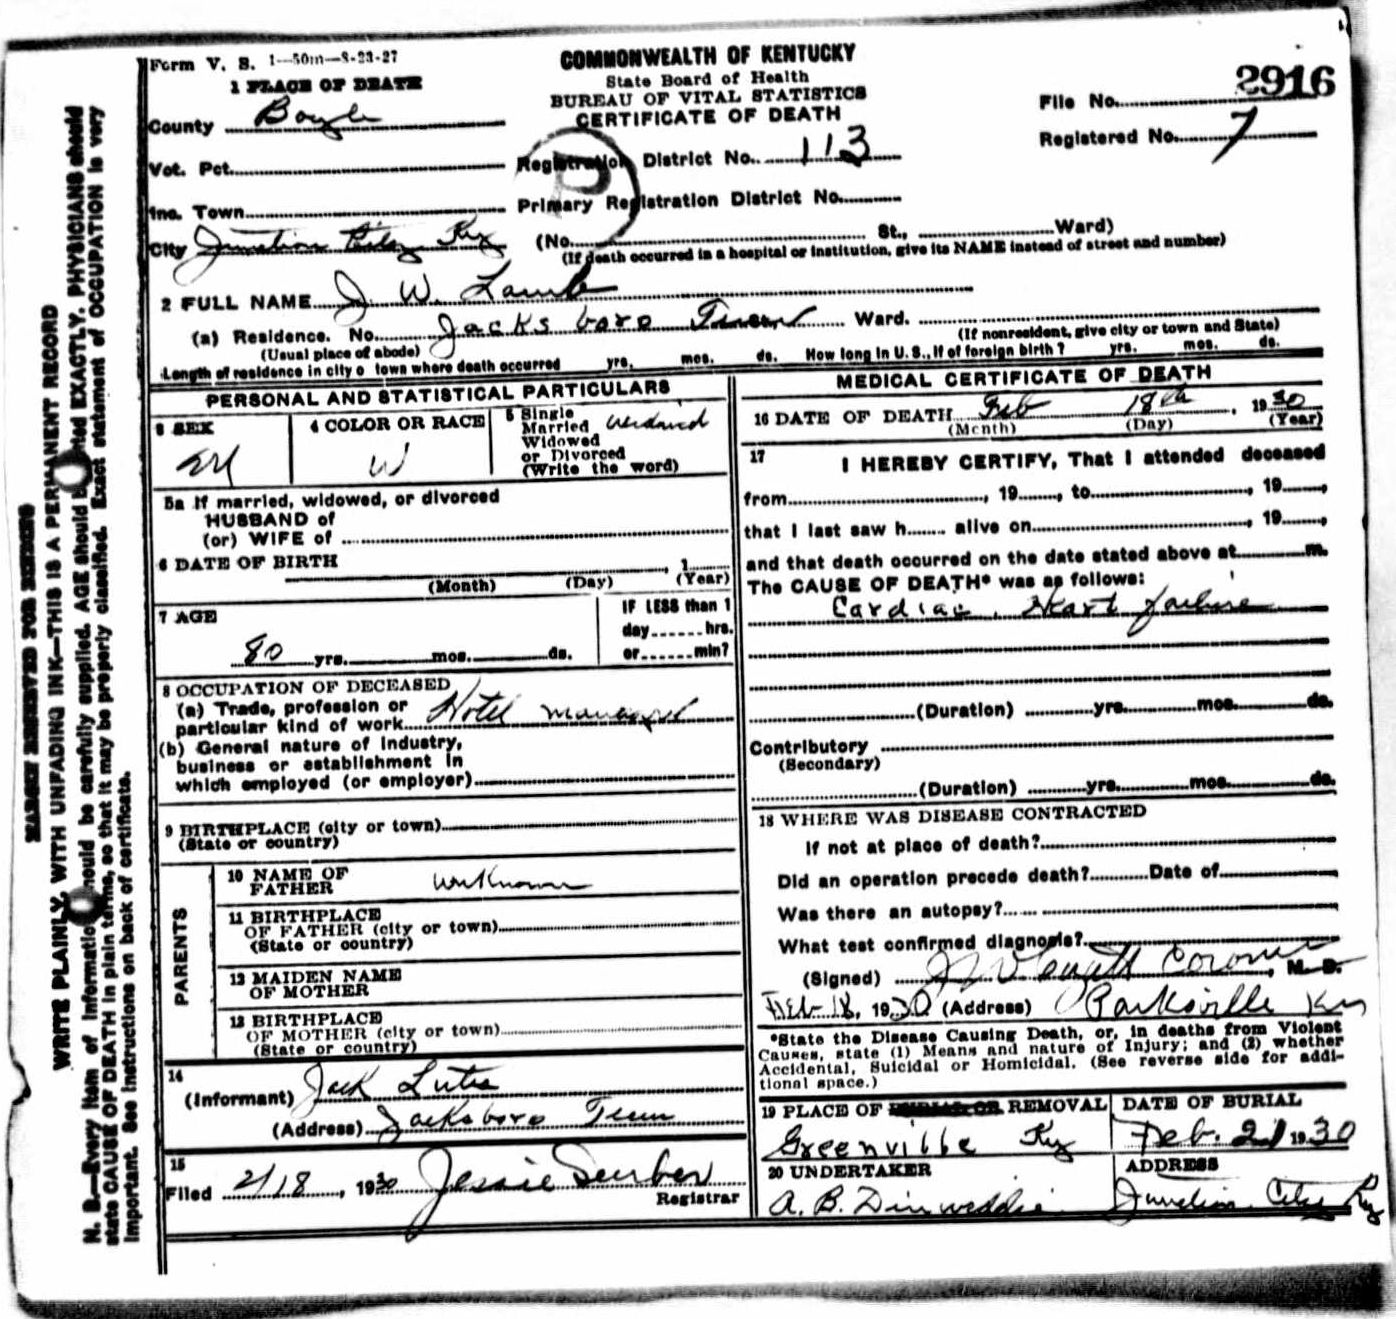 Form V. S. 1—50m—8-23-27
COMMONWEALTH OF KENTUCKY
State Board of Health
BUREAU OF VITAL STATISTICS
CERTIFICATE OF DEATH
File No. 2916
Registered No. 7
1 PLACE OF DEATH
County Boyle
Vot. Pct.
Registration District No. 113
Inc. Town
Primary Registration District No.
City Junction City Ky (No. St., Ward)
(If death occurred in a hospital or institution, give its NAME instead of street and number)
2 FULL NAME J W. Lamb
(a) Residence. No. Jacksboro Tenn Ward.
(Usual place of abode) (If nonresident, give city or town and State)
Length of residence in city o town where death occurred yrs. mos. ds. How long in U. S., if of foreign birth? yrs. mos. ds.
PERSONAL AND STATISTICAL PARTICULARS
3 SEX M
4 COLOR OR RACE W
5 Single
Married
Widowed
or Divorced
(Write the word)
5a If married, widowed, or divorced
HUSBAND of
(or) WIFE of
6 DATE OF BIRTH , 1
(Month) (Day) (Year)
7 AGE
80 yrs. mos. ds.
IF LESS than 1
day hrs.
or min?
8 OCCUPATION OF DECEASED
(a) Trade, profession or
particular kind of work Hotel manager
(b) General nature of industry,
business or establishment in
which employed (or employer)
9 BIRTHPLACE (city or town)
(State or country)
PARENTS
10 NAME OF
FATHER unKnown
11 BIRTHPLACE
OF FATHER (city or town)
(State or country)
12 MAIDEN NAME
OF MOTHER
13 BIRTHPLACE
OF MOTHER (city or town)
(State or country)
14
(Informant) Jack
(Address) Jacksboro Tenn
15
Filed 2/18, 1930 Jessie
Registrar
MEDICAL CERTIFICATE OF DEATH
16 DATE OF DEATH Feb 18th, 1930
(Month) (Day) (Year)
17
I HEREBY CERTIFY, That I attended deceased
from , 19 , to , 19 ,
that I last saw h alive on , 19 ,
and that death occurred on the date stated above at m.
The CAUSE OF DEATH* was as follows:
Cardiac. Heart failure
(Duration) yrs. mos. ds.
Contributory
(Secondary)
(Duration) yrs. mos. ds.
18 WHERE WAS DISEASE CONTRACTED
If not at place of death?
Did an operation precede death? Date of
Was there an autopsy?
What test confirmed diagnosis?
(Signed) Coroner, M. D.
Feb 18, 1930 (Address) Parksville Ky
*State the Disease Causing Death, or, in deaths from Violent
Causes, state (1) Means and nature of Injury; and (2) whether
Accidental, Suicidal or Homicidal. (See reverse side for addi-
tional space.)
19 PLACE OF BURIAL OR REMOVAL
Greenville Ky
DATE OF BURIAL
Feb. 21 1930
20 UNDERTAKER
A. B. Dinwiddie
ADDRESS
Junction City Ky
MARGIN RESERVED FOR BINDING
WRITE PLAINLY, WITH UNFADING INK—THIS IS A PERMANENT RECORD
N. B.—Every item of information should be carefully supplied. AGE should be stated EXACTLY. PHYSICIANS should
state CAUSE OF DEATH in plain terms, so that it may be properly classified. Exact statement of OCCUPATION is very
important. See instructions on back of certificate.